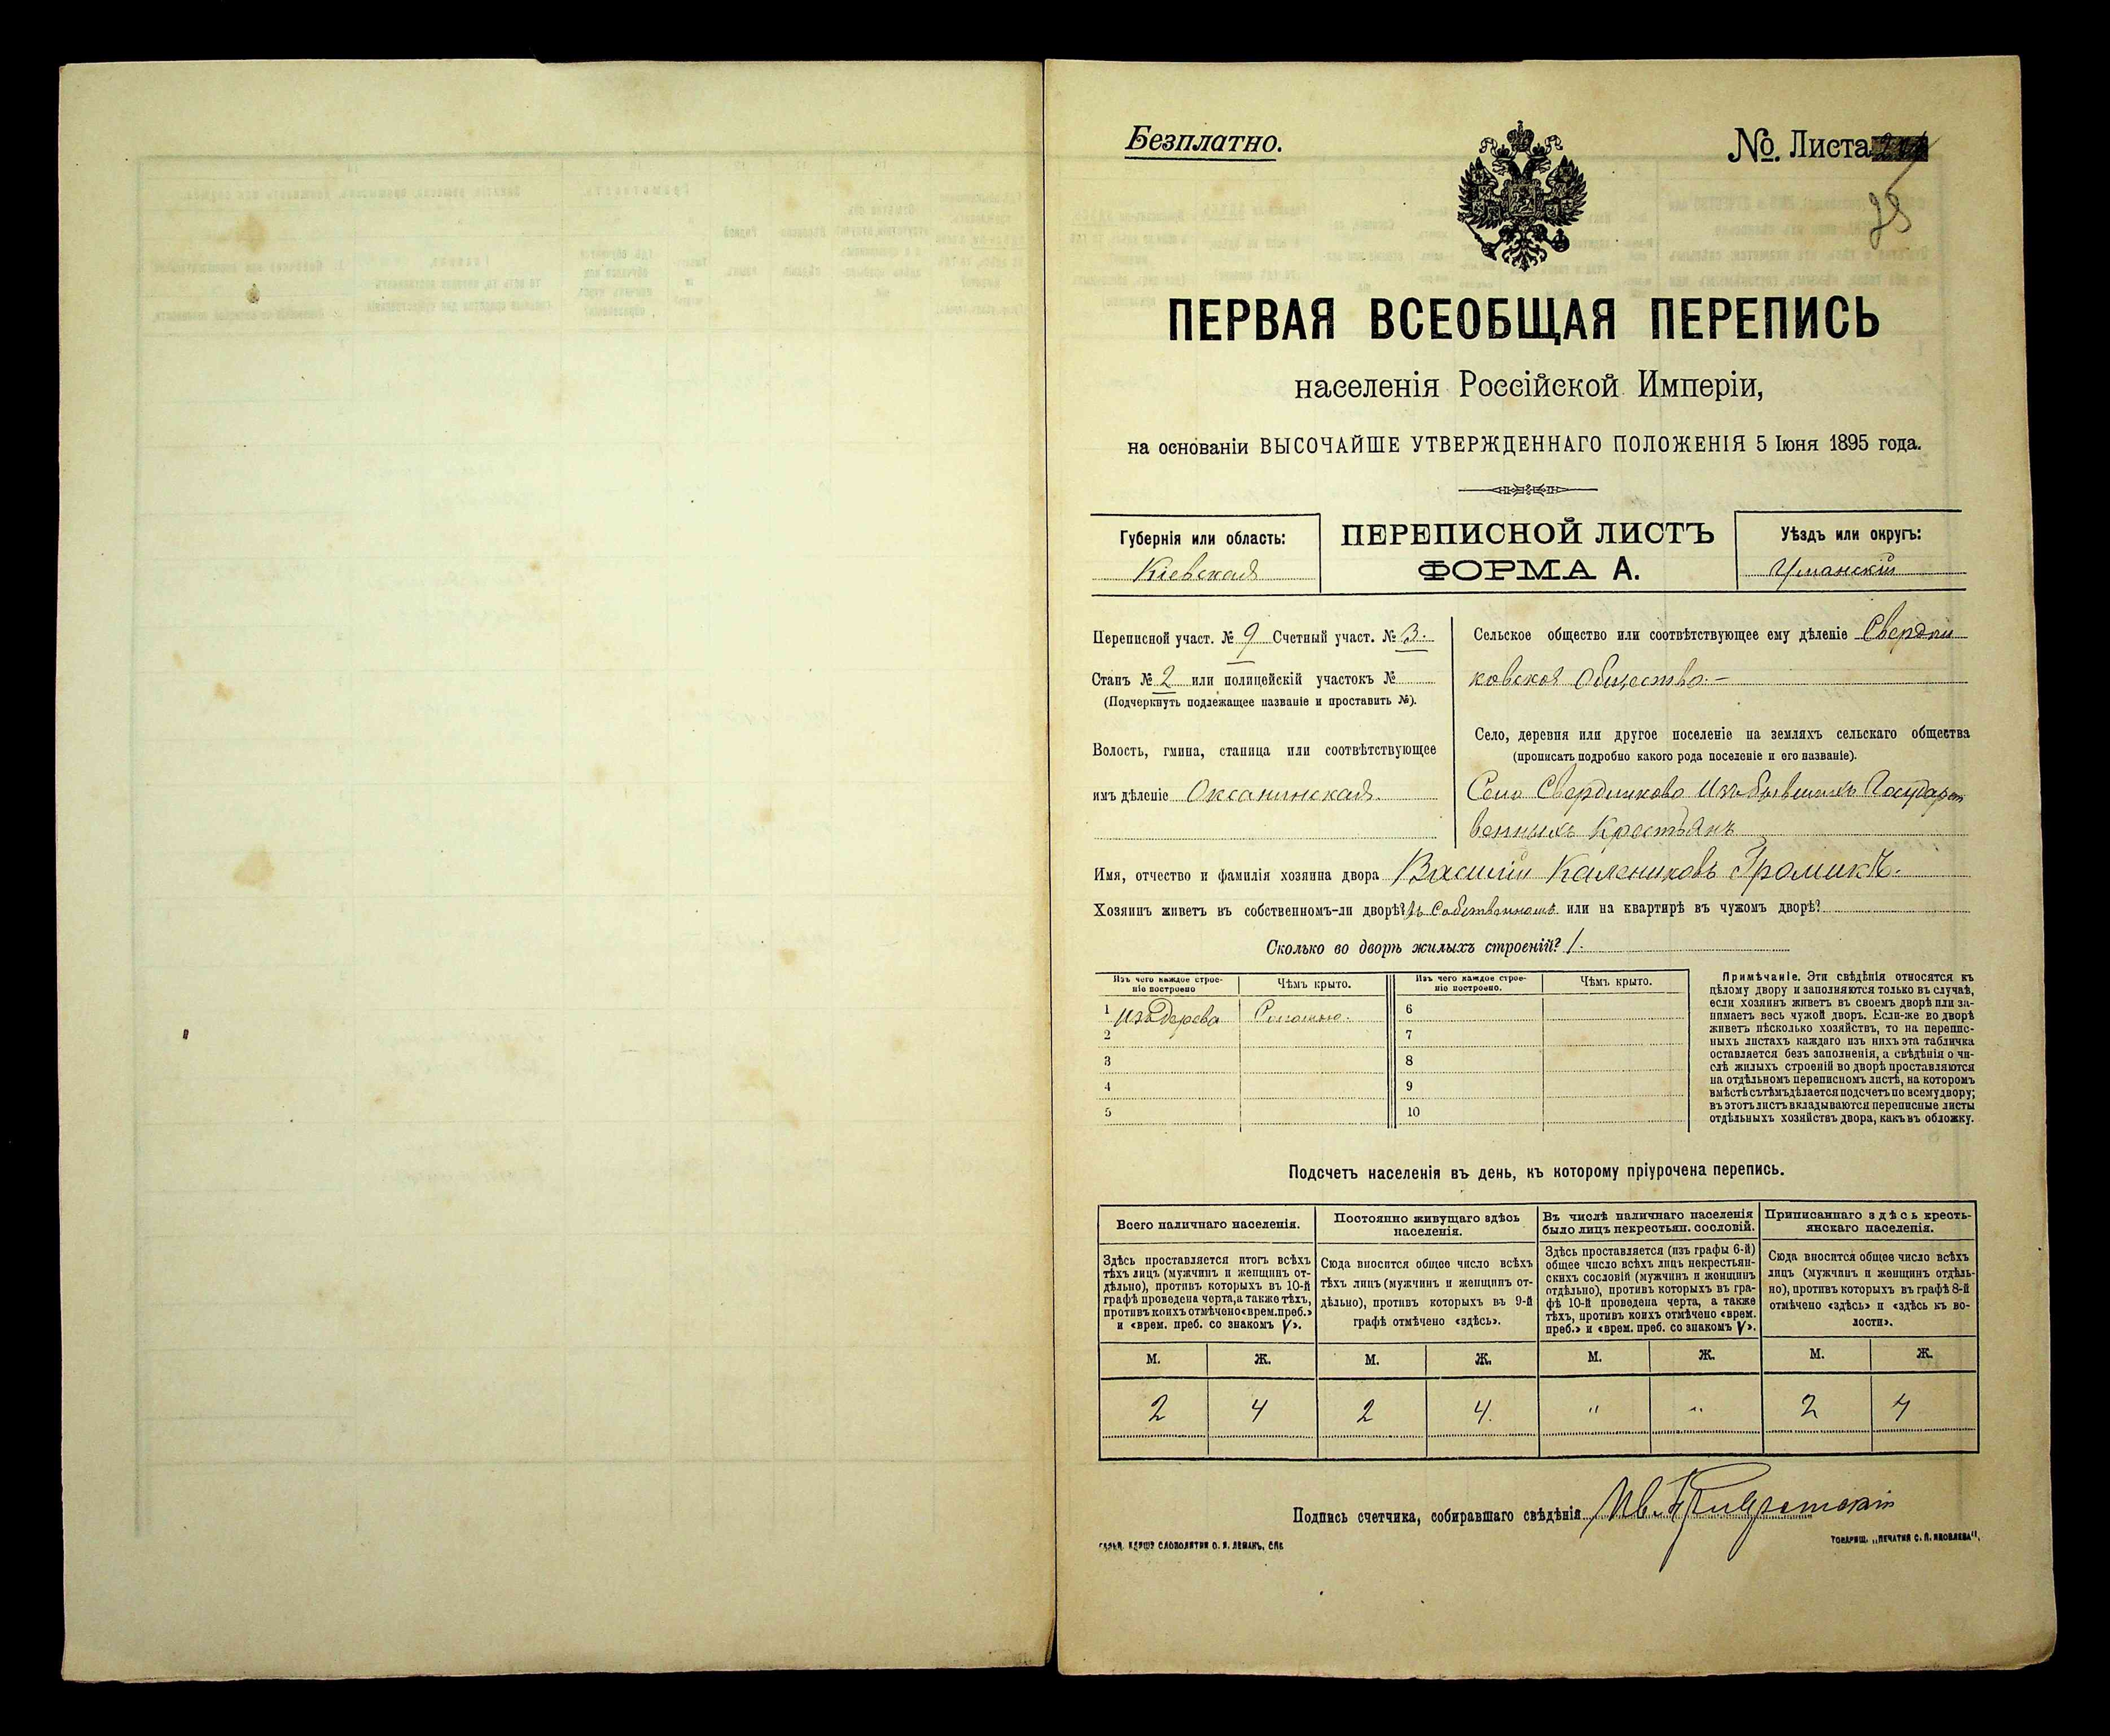 Безплатно.
№. Листа
25
ПЕРВАЯ ВСЕОБЩАЯ ПЕРЕПИСЬ
населенія Россійской Имперіи,
на основаніи ВЫСОЧАЙШЕ УТВЕРЖДЕННАГО ПОЛОЖЕНІЯ 5 Іюня 1895 года.
Губернія или область:
Кіевская
ПЕРЕПИСНОЙ ЛИСТЪ
ФОРМА А.
Уѣздъ или округъ:
Уманскій
Переписной участ. № 9 Счетный участ. № 3.
Станъ № 2 или полицейскій участокъ №
(Подчеркнуть подлежащее названіе и проставить №).
Волость, гмина, станица или соотвѣтствующее
имъ дѣленіе Оксанинская.
Сельское общество или соотвѣтствующее ему дѣленіе Свердли
ковское Общество.—
Село, деревня или другое поселеніе на земляхъ сельскаго общества
(прописать подробно какого рода поселеніе и его названіе).
Село Свердликово Изъ бывшихъ Государст
венныхъ Крестьянъ
Имя, отчество и фамилія хозяина двора Василій Калениковъ Громикъ.
Хозяинъ живетъ въ собственномъ-ли дворѣ? Въ Собственномъ или на квартирѣ въ чужомъ дворѣ?
Сколько во дворѣ жилыхъ строеній? 1.
Изъ чего каждое строе-
ніе построено
Чѣмъ крыто.
Изъ чего каждое строе-
ніе построено.
Чѣмъ крыто.
1 Изъ Дерева Соломою.
2
3
4
5
6
7
8
9
10
Примѣчаніе. Эти свѣдѣнія относятся къ
цѣлому двору и заполняются только въ случаѣ,
если хозяинъ живетъ въ своемъ дворѣ или за-
нимаетъ весь чужой дворъ. Если-же во дворѣ
живетъ нѣсколько хозяйствъ, то на перепис-
ныхъ листахъ каждаго изъ нихъ эта табличка
оставляется безъ заполненія, а свѣдѣнія о чи-
слѣ жилыхъ строеній во дворѣ проставляются
на отдѣльномъ переписномъ листѣ, на которомъ
вмѣстѣ съ тѣмъ дѣлается подсчетъ по всему двору;
въ этотъ листъ вкладываются переписные листы
отдѣльныхъ хозяйствъ двора, какъ въ обложку.
Подсчетъ населенія въ день, къ которому пріурочена перепись.
Всего наличнаго населенія.
Здѣсь проставляется итогъ всѣхъ
тѣхъ лицъ (мужчинъ и женщинъ от-
дѣльно), противъ которыхъ въ 10-й
графѣ проведена черта, а также тѣхъ,
противъ коихъ отмѣчено «врем. преб.»
и «врем. преб. со знакомъ V».
Постоянно живущаго здѣсь
населенія.
Сюда вносится общее число всѣхъ
тѣхъ лицъ (мужчинъ и женщинъ от-
дѣльно), противъ которыхъ въ 9-й
графѣ отмѣчено «здѣсь».
Въ числѣ наличнаго населенія
было лицъ некрестьян. сословій.
Здѣсь проставляется (изъ графы 6-й)
общее число всѣхъ лицъ некрестьян-
скихъ сословій (мужчинъ и женщинъ
отдѣльно), противъ которыхъ въ гра-
фѣ 10-й проведена черта, а также
тѣхъ, противъ коихъ отмѣчено «врем.
преб.» и «врем. преб. со знакомъ V».
Приписаннаго здѣсь кресть-
янскаго населенія.
Сюда вносится общее число всѣхъ
лицъ (мужчинъ и женщинъ отдѣль-
но), противъ которыхъ въ графѣ 8-й
отмѣчено «здѣсь» и «здѣсь къ во-
лости».
М. Ж. М. Ж. М. Ж. М. Ж.
2 4 2 4. " " 2 4
Подпись счетчика, собиравшаго свѣдѣнія Ив.
СЛОВОЛИТНИ О. И. ЛЕМАНЪ, СПБ
ТОВАРИЩ. „ПЕЧАТНЯ С. П. ЯКОВЛЕВА“.